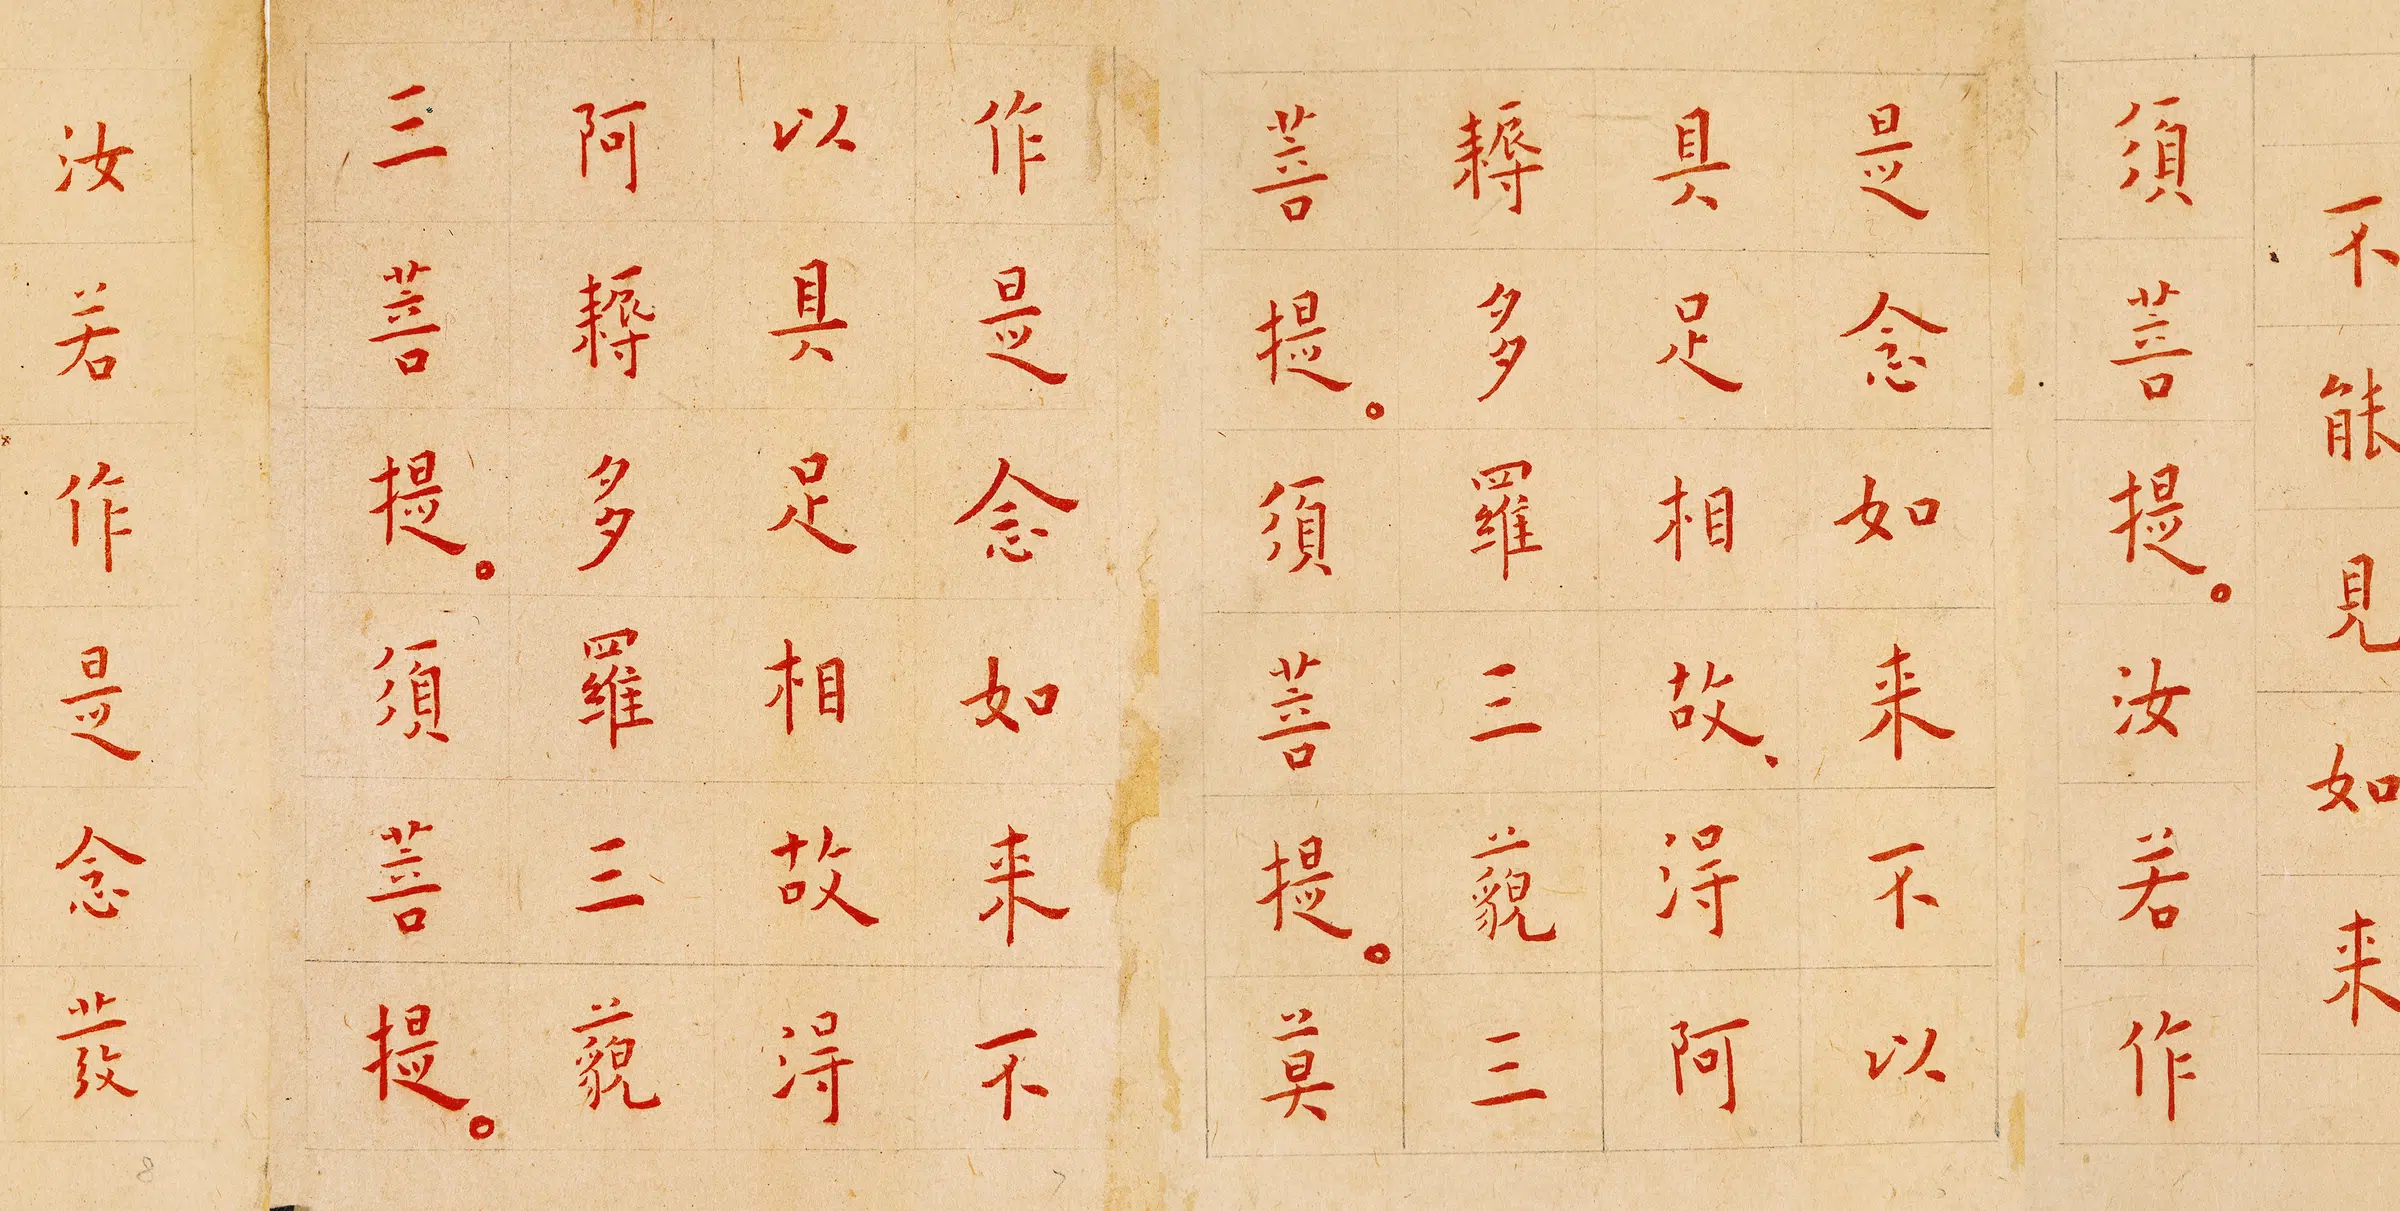 不能見如来
須菩提。汝若作
是念如来不以
具足相故、得阿
耨多羅三藐三
菩提。須菩提。莫
作是念如来不
以具足相故得
阿耨多羅三藐
三菩提。須菩提。
汝若作是念發
8